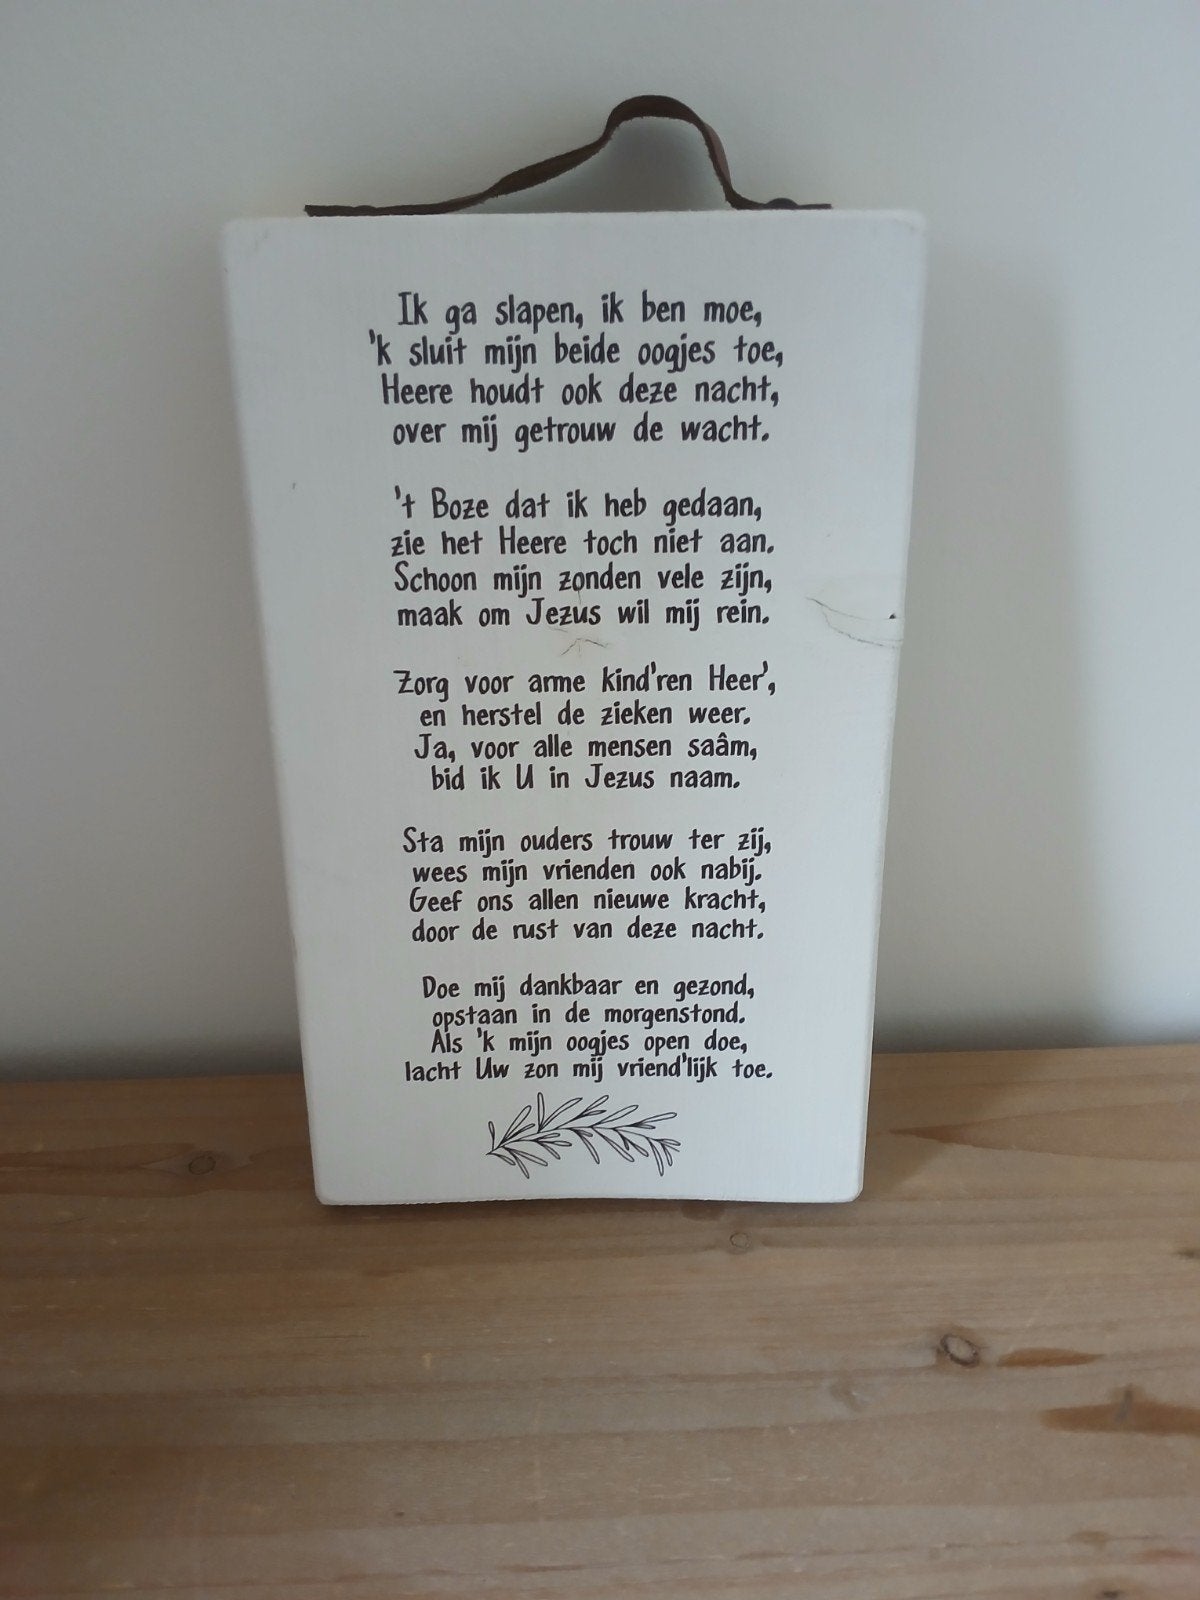 Ik ga slapen, ik ben moe,
'k sluit mijn beide oogjes toe,
Heere houdt ook deze nacht,
over mij getrouw de wacht.
't Boze dat ik heb gedaan,
zie het Heere toch niet aan.
Schoon mijn zonden vele zijn,
maak om Jezus wil mij rein.
Zorg voor arme kind'ren Heer',
en herstel de zieken weer.
Ja, voor alle mensen saâm,
bid ik U in Jezus naam.
Sta mijn ouders trouw ter zij,
wees mijn vrienden ook nabij.
Geef ons allen nieuwe kracht,
door de rust van deze nacht.
Doe mij dankbaar en gezond,
opstaan in de morgenstond.
Als 'k mijn oogjes open doe,
lacht Uw zon mij vriend'lijk toe.